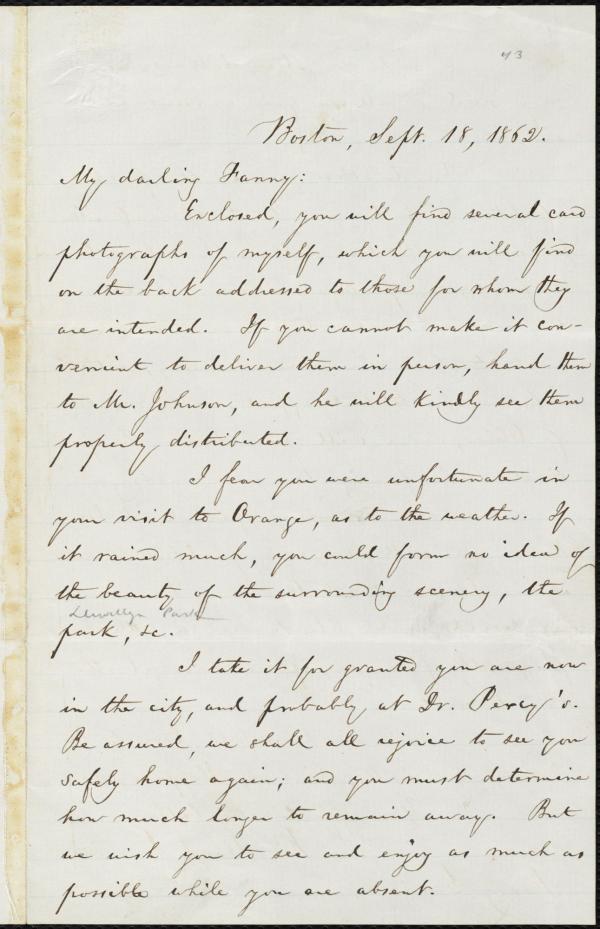 43
Boston, Sept. 18, 1862.
My darling Fanny:
Enclosed, you will find several card
photographs of myself, which you will find
on the back addressed to those for whom they
are intended. If you cannot make it con-
venient to deliver them in person, hand them
to Mr. Johnson, and he will kindly see them
properly distributed.
I fear you were unfortunate in
your visit to Orange, as to the weather. If
it rained much, you could form no idea of
the beauty of the surrounding scenery, the
Llewellyn Park
park, &c.
I take it for granted you are now
in the city, and probably at Dr. Percy's.
Be assured, we shall all rejoice to see you
safely home again; and you must determine
how much longer to remain away. But
we wish you to see and enjoy as much as
possible while you are absent.